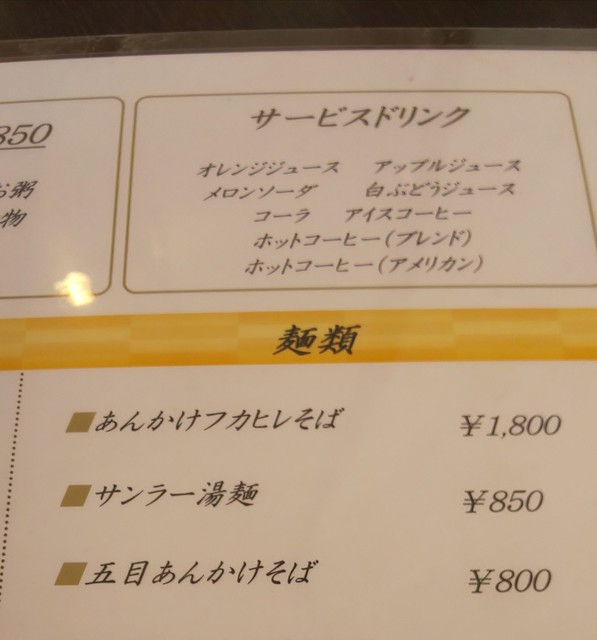 850
お粥
物
サービスドリンク
オレンジジュース アップルジュース
メロンソーダ 白ぶどうジュース
コーラ アイスコーヒー
ホットコーヒー(ブレンド)
ホットコーヒー(アメリカン)
麺類
あんかけフカヒレそば ¥1,800
サンラー湯麺 ¥850
五目あんかけそば ¥800